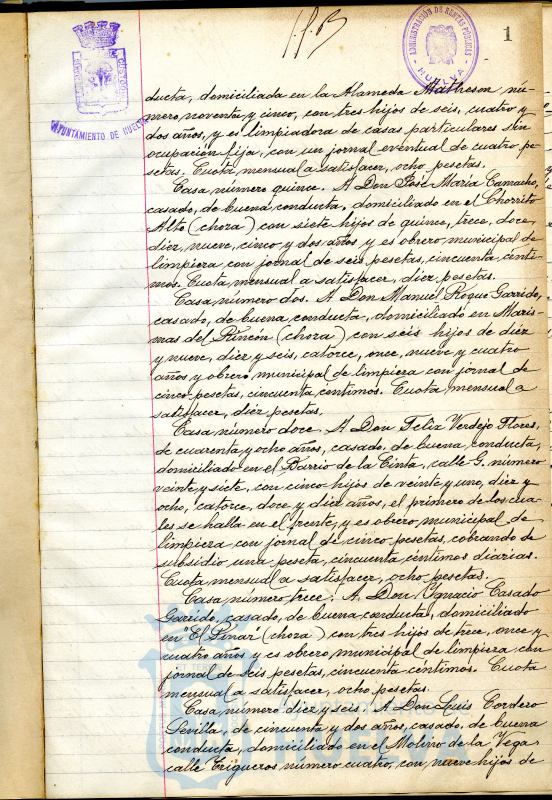 1
ADMINISTRACIÓN DE RENTAS PÚBLICAS
HUELVA
AYUNTAMIENTO DE HUELVA
ducta, domiciliada en la Alameda Matheson nú-
mero noventa y cinco, con tres hijos de seis, cuatro y
dos años, y es limpiadora de casas particulares sin
ocupación fija, con un jornal eventual de cuatro pe-
setas. Cuota mensual a satisfacer, ocho pesetas.
Casa número quince. A Don José María Camacho,
casado, de buena conducta, domiciliado en el Chorrito
Alto (choza) con siete hijos de quince, trece, doce,
diez, nueve, cinco y dos años y es obrero municipal de
limpieza con jornal de seis pesetas, cincuenta cénti-
mos. Cuota mensual a satisfacer, diez pesetas.
Casa número dos. A Don Manuel Roque Garrido,
casado, de buena conducta, domiciliado en Maris-
mas del Rincón (choza) con seis hijos de diez
y nueve, diez y seis, catorce, once, nueve y cuatro
años y obrero municipal de limpieza con jornal de
cinco pesetas, cincuenta céntimos. Cuota mensual a
satisfacer, diez pesetas.
Casa número doce. A Don Felix Verdejo Flores,
de cuarenta y ocho años, casado, de buena conducta,
domiciliado en el Barrio de la Cinta, calle G. número
veinte y siete, con cinco hijos de veinte y uno, diez y
ocho, catorce, doce y diez años, el primero de los cua-
les se halla en el frente, y es obrero municipal de
limpieza con jornal de cinco pesetas, cobrando de
subsidio una peseta, cincuenta céntimos diarias.
Cuota mensual a satisfacer, ocho pesetas.
Casa número trece. A Don Ignacio Casado
Garrido, casado, de buena conducta, domiciliado
en "El Pinar (choza) con tres hijos de trece, once y
cuatro años y es obrero municipal de limpieza con
jornal de seis pesetas, cincuenta céntimos. Cuota
mensual a satisfacer, ocho pesetas.
Casa número diez y seis. A Don Luis Cordero
Sevilla, de cincuenta y dos años, casado, de buena
conducta, domiciliado en el Molino de la Vega
calle Trigueros número cuatro, con nueve hijos de